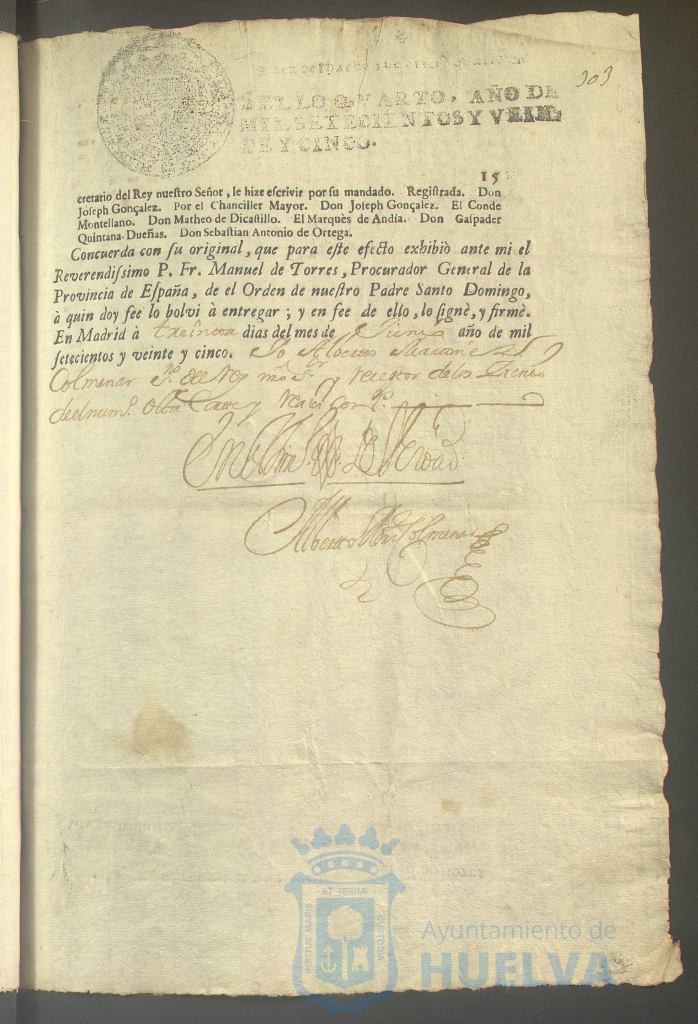 303
SELLO QVARTO, AÑO DE
MIL SETECIENTOS Y VEIN-
DE Y CINCO.
15
cretario del Rey nuestro Señor, le hize escrivir por su mandado. Registrada. Don
Joseph Gonçalez. Por el Chanciller Mayor. Don Joseph Gonçalez. El Conde
Montellano. Don Matheo de Dicastillo. El Marquès de Andia. Don Gaspader
Quintana-Dueñas. Don Sebastian Antonio de Ortega.
Concuerda con su original, que para este efecto exhibiò ante mi el
Reverendissimo P. Fr. Manuel de Torres, Procurador General de la
Provincia de España, de el Orden de nuestro Padre Santo Domingo,
à quien doy fee lo bolvi à entregar; y en fee de ello, lo signè, y firmè.
En Madrid à treinta dias del mes de año de mil
setecientos y veinte y cinco. Yo Alberto
Colmenar del Rey y receptor de los
y
En testim.º de Verdad
Alberto Colmenar
PORTUS MARIS ET TERRAE CUSTODIA
Ayuntamiento de
HUELVA